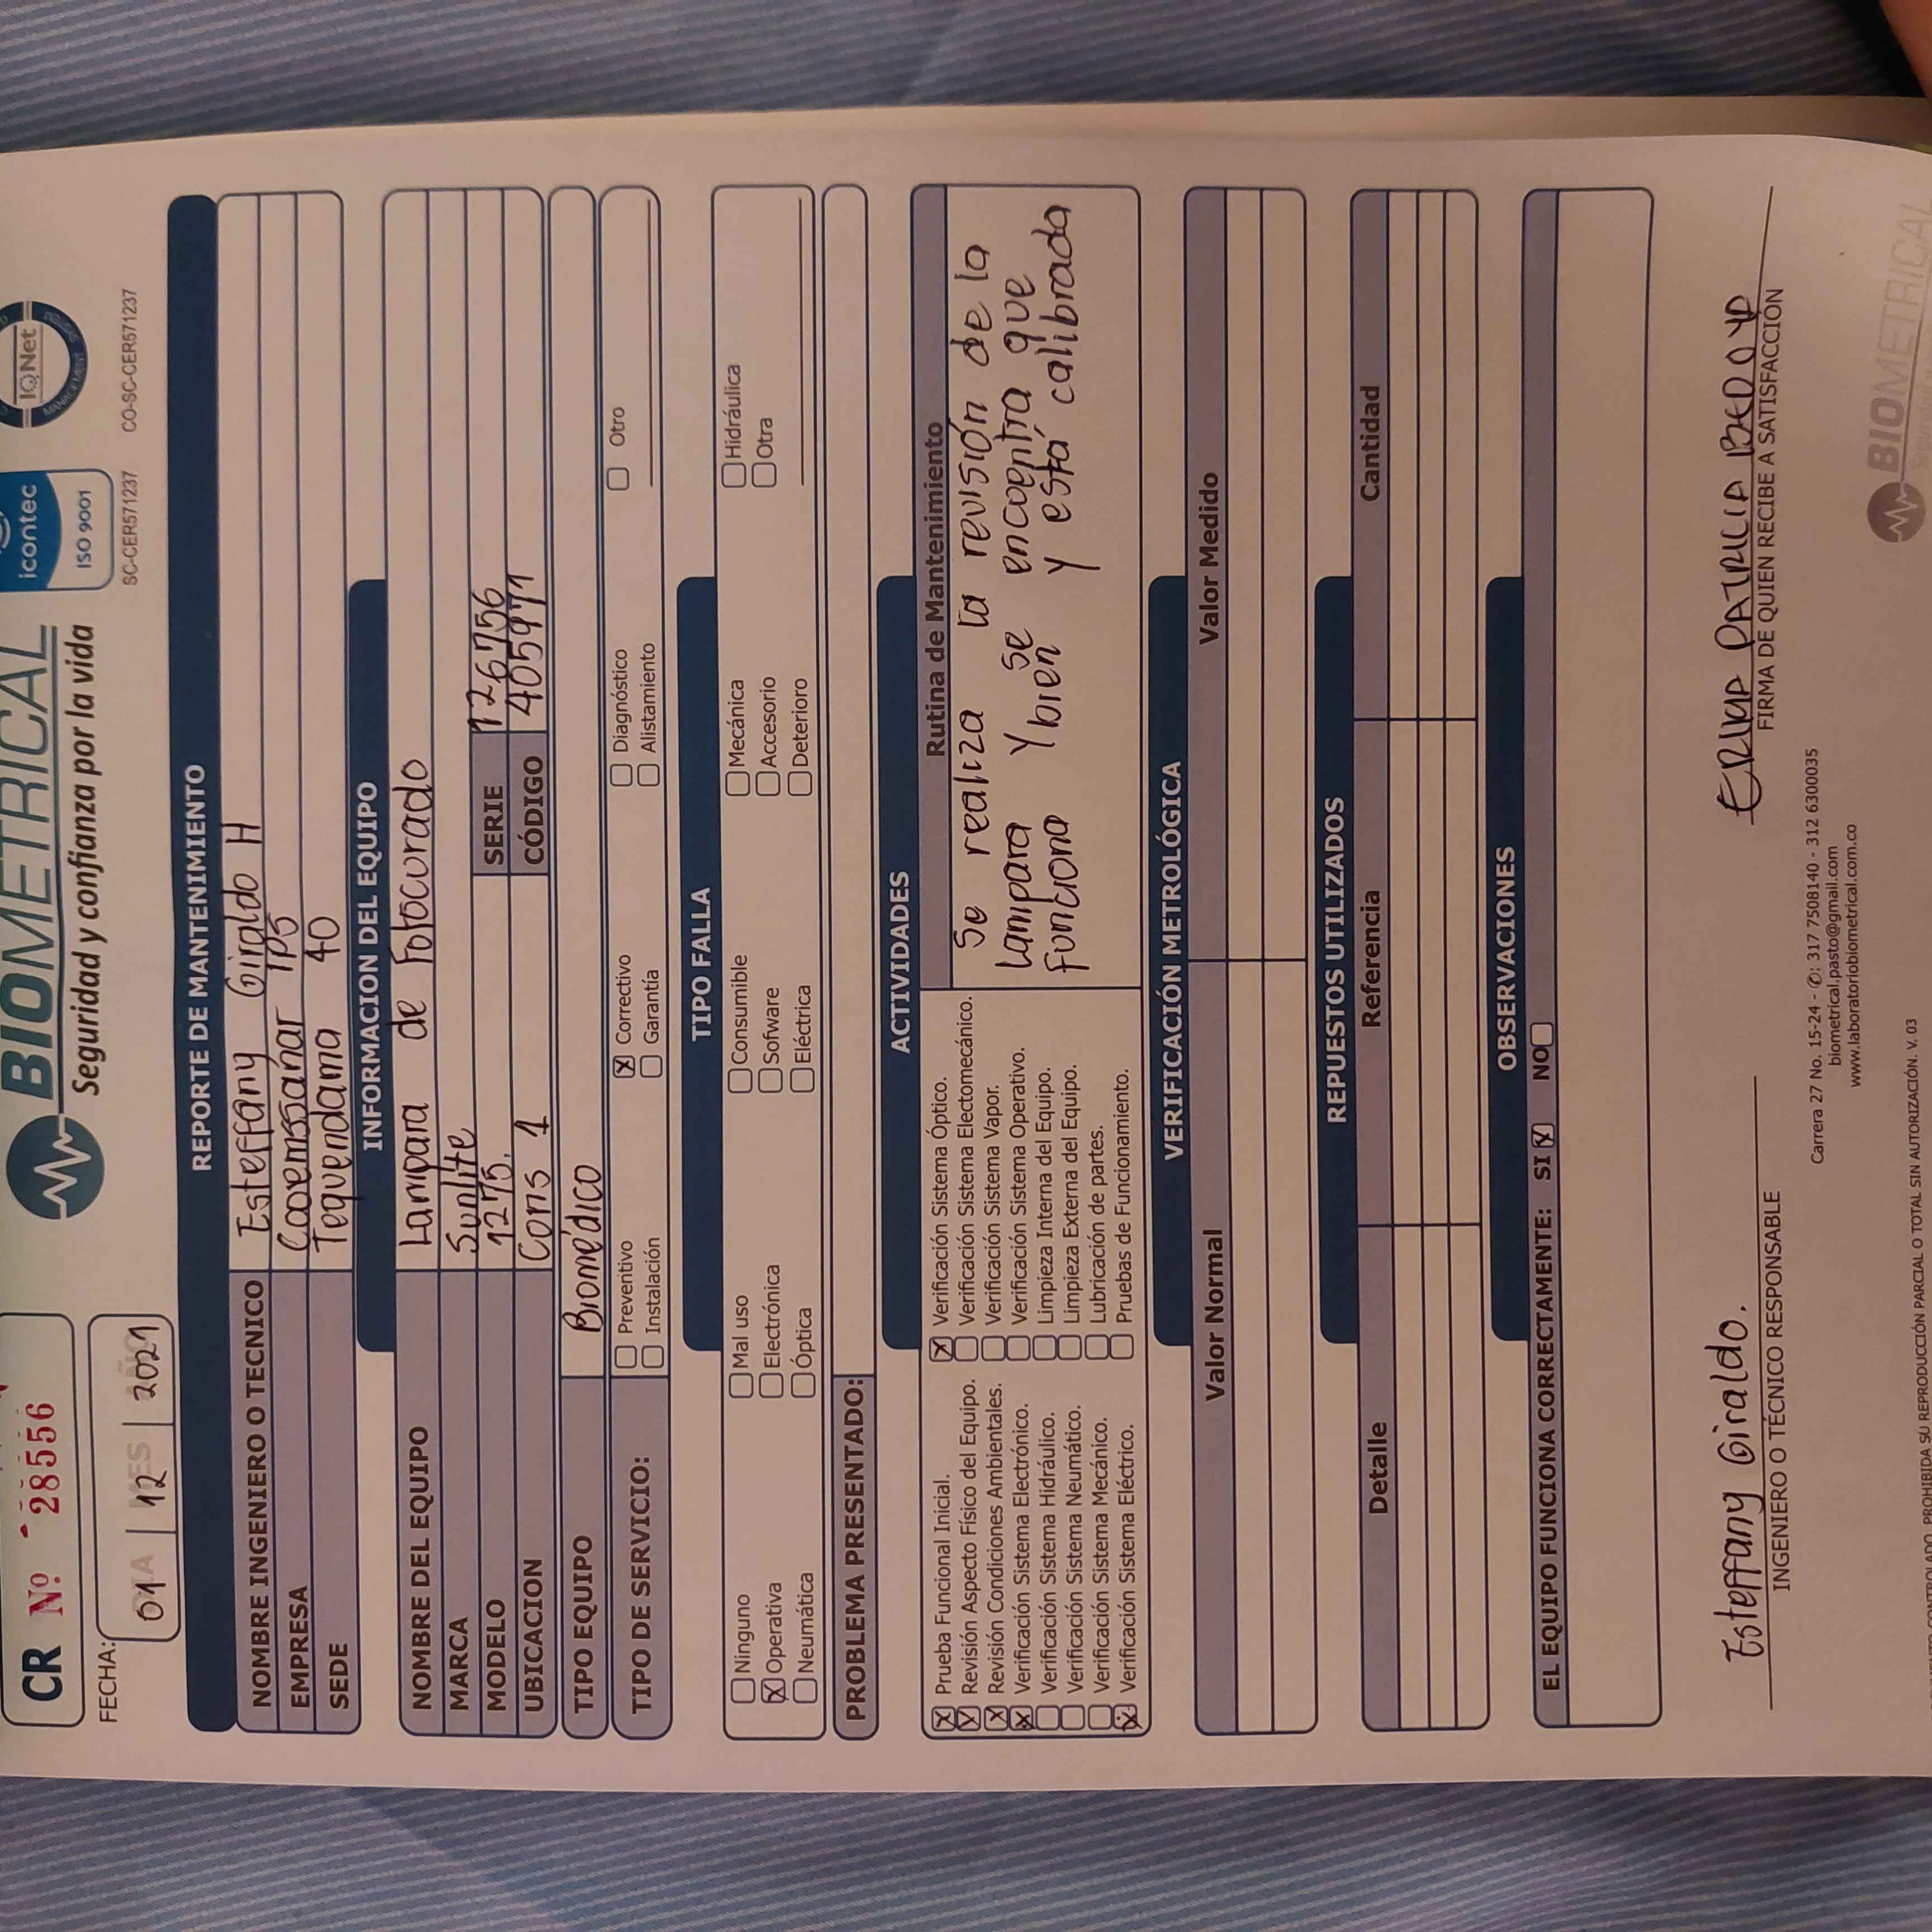 CR Nº 28556
BIOMETRICAL
Seguridad y confianza por la vida
icontec
ISO 9001
SC-CER571237
IQNet
MANAGEMENT SYSTEM
CO-SC-CER571237
FECHA:
DIA MES AÑO
01 12 2021
REPORTE DE MANTENIMIENTO
NOMBRE INGENIERO O TECNICO Esteffany Giraldo H
EMPRESA Cooemssanar IPS
SEDE Tequendama 40
INFORMACION DEL EQUIPO
NOMBRE DEL EQUIPO Lampara de Fotocurado
MARCA Sunlite
MODELO 1275. SERIE 126756
UBICACION Cons 1 CÓDIGO 405971
TIPO EQUIPO Biomédico
TIPO DE SERVICIO:
Preventivo X Correctivo Diagnóstico Otro
Instalación Garantía Alistamiento
TIPO FALLA
Ninguno Mal uso Consumible Mecánica Hidráulica
X Operativa Electrónica Sofware Accesorio Otra
Neumática Óptica Eléctrica Deterioro
PROBLEMA PRESENTADO:
ACTIVIDADES
X Prueba Funcional Inicial.
X Revisión Aspecto Físico del Equipo.
X Revisión Condiciones Ambientales.
X Verificación Sistema Electrónico.
Verificación Sistema Hidráulico.
Verificación Sistema Neumático.
Verificación Sistema Mecánico.
X Verificación Sistema Eléctrico.
X Verificación Sistema Óptico.
Verificación Sistema Electomecánico.
Verificación Sistema Vapor.
Verificación Sistema Operativo.
Limpieza Interna del Equipo.
Limpieza Externa del Equipo.
Lubricación de partes.
Pruebas de Funcionamiento.
Rutina de Mantenimiento
Se realiza la revisión de la
lampara y se encuentra que
funciona bien y está calibrada
VERIFICACIÓN METROLÓGICA
Valor Normal Valor Medido
REPUESTOS UTILIZADOS
Detalle Referencia Cantidad
OBSERVACIONES
EL EQUIPO FUNCIONA CORRECTAMENTE: SI X NO
Esteffany Giraldo.
INGENIERO O TÉCNICO RESPONSABLE
ERIKA PATRICIA BEDOYA
FIRMA DE QUIEN RECIBE A SATISFACCIÓN
Carrera 27 No. 15-24 - ✆: 317 7508140 - 312 6300035
biometrical.pasto@gmail.com
www.laboratoriobiometrical.com.co
BIOMETRICAL
Seguridad y confianza
CONTROLADO, PROHIBIDA SU REPRODUCCIÓN PARCIAL O TOTAL SIN AUTORIZACIÓN. V. 03